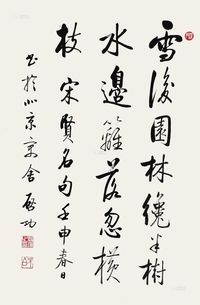 雪後園林纔半樹
水邊籬落忽橫
枝 宋賢名句 壬申春日
書於北京寓舍 啓功